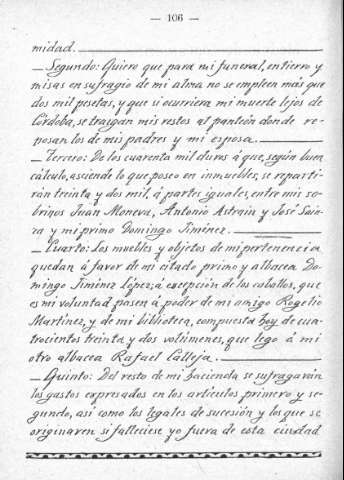 — 106 —
midad.
— Segundo: Quiero que para mi funeral, entierro y
misas en sufragio de mi alma no se empleen más que
dos mil pesetas, y que si ocurriera mi muerte lejos de
Córdoba, se traigan mis restos al panteón donde re-
posan los de mis padres y mi esposa.
— Tercero: De los cuarenta mil duros á que, según buen
cálculo, asciende lo que poseo en inmuebles, se reparti-
rán treinta y dos mil, á partes iguales, entre mis so-
brinos Juan Moneva, Antonio Astrain y José Sain-
ra y mi primo Domingo Jiménez.
— Cuarto: Los muebles y objetos de mi pertenencia
quedan á favor de mi citado primo y albacea Do-
mingo Jiménez López; á excepción de los caballos, que
es mi voluntad pasen á poder de mi amigo Rogelio
Martínez, y de mi biblioteca, compuesta hoy de cua-
trocientos treinta y dos volúmenes, que lego á mi
otro albacea Rafael Calleja.
— Quinto: Del resto de mi hacienda se sufragarán
los gastos expresados en los artículos primero y se-
gundo, así como los legales de sucesión y los que se
originaren si falleciese yo fuera de esta ciudad